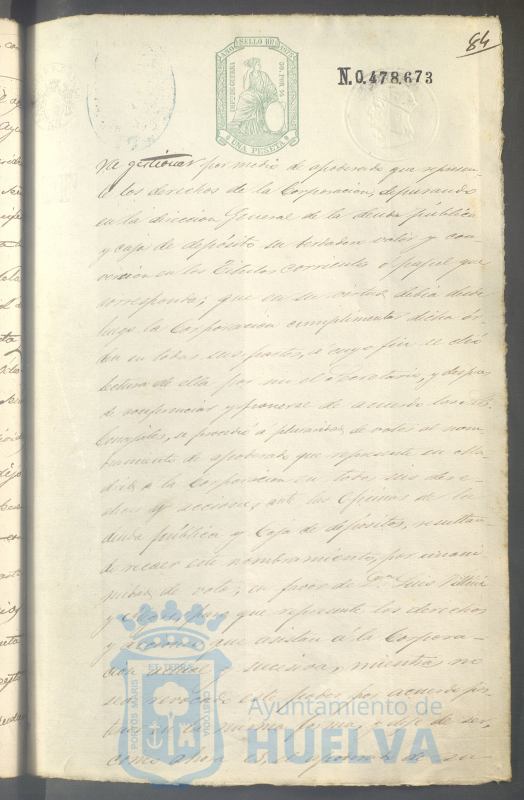 84
AÑO SELLO 11º 1875
IMPTO DE GUERRA
50 POR %
UNA PESETA
N.0.478.673
ra gestionar por medio de apoderado que represen-
te los derechos de la Corporacion, depurando
en la direccion General de la deuda pública
y caja de depósito su verdadero valor y con-
version en los Titulos corrientes ó papel que
corresponda; que en su virtud debia desde
luego la Corporacion cumplimentar dicha ór-
den en todas sus partes, á cuyo fin se dió
lectura de ella por mi el Secretario, y despues
de conferenciar y ponerse de acuerdo los SS.
Concejales, se procedió á pluralidad de votos al nom-
bramiento de apoderado que represente en
Madrid á la Corporacion en todos sus dere-
chos y acciones, ante las Oficinas de la
deuda pública y Caja de depósitos, resultan-
do recaer este nombramiento, por unani-
midad de votos, en favor de Dn. Luis
y para que represente los derechos
y acciones que asistan á la Corpora-
cion actual y sucesiva, mientras no
sea revocado este poder por acuerdo
en la misma forma, y deje de ser,
como ahora es, apoderado de su
PORTUS MARIS ET TERRAE CUSTODIA
Ayuntamiento de
HUELVA